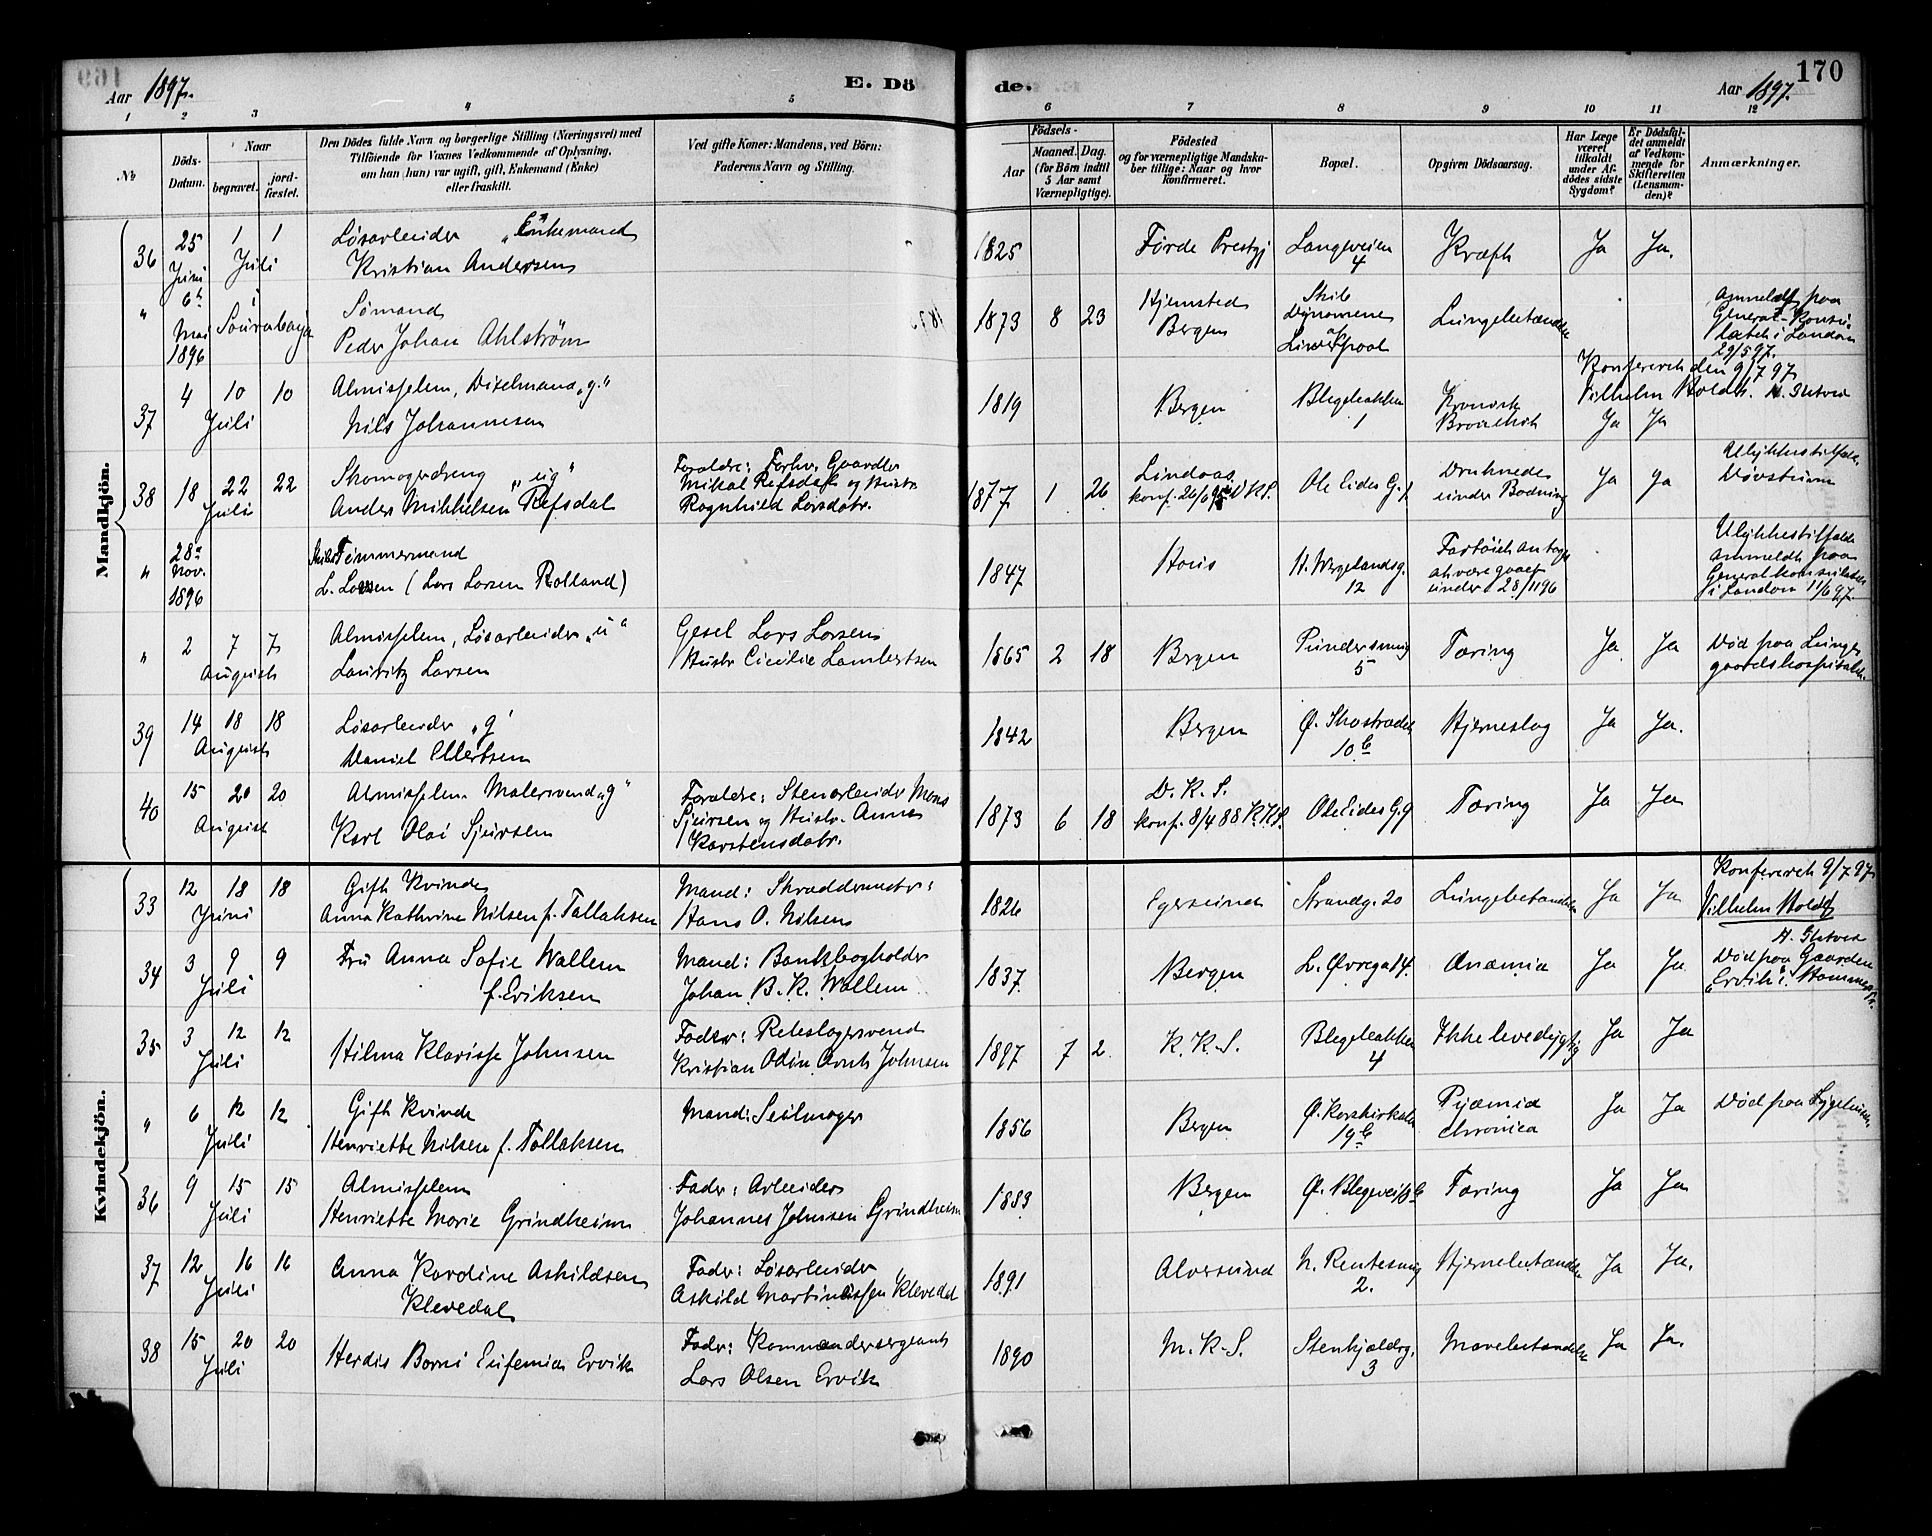 Aar 1897. E. Dö
de. Aar 1897. 170
1 2 3 4 5
6 7 8 9 10 11 12
No
Döds-Datum.
Naar
begravet.
jordfæstet.
Den Dödes fulde Navn og borgerlige Stilling (Næringsvei) med
Tilföiende for Voxnes Vedkommende af Oplysning,
om han (hun) var ugift, gift, Enkemand (Enke)
eller fraskilt.
Ved gifte Koner: Mandens, ved Börn:
Faderens Navn og Stilling.
Födsels-
Aar
Maaned. Dag.
(for Börn indtil
5 Aar samt
Værnepligtige).
Födested
og for værnepligtige Mandskaber tillige: Naar og hvor
konfirmeret.
Bopæl.
Opgiven Dödsaarsag.
Har Læge
været
tilkaldt
under Afdödes sidste
Sygdom?
Er Dödsfaldet anmeldt
af Vedkommende for
Skifteretten
(Lensmanden)?
Anmærkninger.
Mandkjön.
36 25 Juni 1 1 Juli
Løsarbeider "Enkemand"
Kristian Andersen
1825 Førde Prestgj Langeveien 4 Kræft Ja Ja.
" 6te Mai 1896 i Sourabaya
Sømand
Peder Johan Ahlström
1873 8 23 Hjemsted Bergen
Skib Dynomene af Liverpool
Lungebetændelse
Anmeldt paa
General-Konsu-
latet i London
29/5 97.
Konfereret den 9/7 97
Vilhelm Holdt.
37 4 10 10 Juli
Almisselem, "g."
Nils Johannesen
1819 Bergen Blegebakken 1 Kronisk Bronchit Ja Ja
38 18 22 22 Juli
Skomagerdreng "ug"
Anders Mikkelsen Refsdal
Forældre: Forhv. Gaardbr
Mikal Refsdal og Hustr
Ragnhild Larsdatr.
1877 1 26 Lindaas
Ole Eides G. 1
Druknede
under Badning
Ja Ja
Ulykkestilfælde
" 28de Nov. 1896
Tømmermand
L. Larsen (Lars Larsen Rolland)
1847 Hous H. Wergelandsg. 12
Fartøiet antages
at være gaaet
under 28/11 96
Ulykkestilfælde
anmeldt paa
Generalkonsulatet
i London 11/6 97.
" 2 7 7 August
Almisselem, Løsarbeider "u"
Lauritz Larsen
Gesel Lars Larsen
Hustr Cicilie Lambertsen
1865 2 18 Bergen Pindersmug 5 Tæring Ja Ja
Død paa Lunge-
gaardshospitalet.
39 14 18 18 August
Løsarbeider "g"
Daniel Ellertsen
1842 Bergen Ø. Skostrædet 10 b Hjerneslag Ja Ja.
40 15 20 20 August
Almisselem Malersvend "g"
Karl Olai Sjursen
Forældre: Stenarbeider Mons
Sjursen og Hustr. Anna
Karstensdatr.
1873 6 18 D. K. S.
konf. 8/4 88 K.K.S.
Ole Eides G. 9 Tæring Ja Ja
Kvindekjön.
33 12 18 18 Juni
Gift Kvinde
Anna Kathrine Nilsen f. Tallaksen
Mand: Skræddermester
Hans O. Nilsen
1826 Egersund Strandg. 20 Lungebetændelse Ja Ja
Konfereret 9/7 97
Vilhelm Holdt
34 3 9 9 Juli
Fru Anna Sofie Wallem
f. Eriksen
Mand: Bankbogholder
Johan B. K. Wallem
1837 Bergen L. Øvrega 14. Anæmia Ja Ja
Død paa Gaarden
"Ervik" i Hammer Pr.
35 3 12 12 Juli
Hilma Klarisse Johnsen
Fader: Rebslagersvend
Kristian Odin Arnts Johnsen
1897 7 2. K. K. S. Blegebakken 4 Ikke levedygtig Ja Ja
" 6 12 12 Juli
Gift Kvinde
Henriette Nilsen f. Tollaksen
Mand: Seilmager
1856 Bergen Ø. Korskirkealm 19 b Pyæmia chronica Ja Ja
Død paa Sygehuset
36 9 15 15 Juli
Almisselem
Henriette Marie Grindheim
Fader: Arbeider
Johannes Johnsen Grindheim
1883 Bergen Ø. Blegevei Tæring Ja Ja
37 12 16 16 Juli
Anna Kardine Askildsen
Klevedal
Fader: Løsarbeider
Askild Martinussen Klevedal
1891 Alversund N. Rentesmug 2. Hjernebetændelse Ja Ja.
38 15 20 20 Juli
Herdis Borni Eufemia Ervik
Fader: Kommandersergeant
Lars Olsen Ervik
1890 M. K. S. Stenkjelderg. 3 Mavebetændelse Ja Ja.